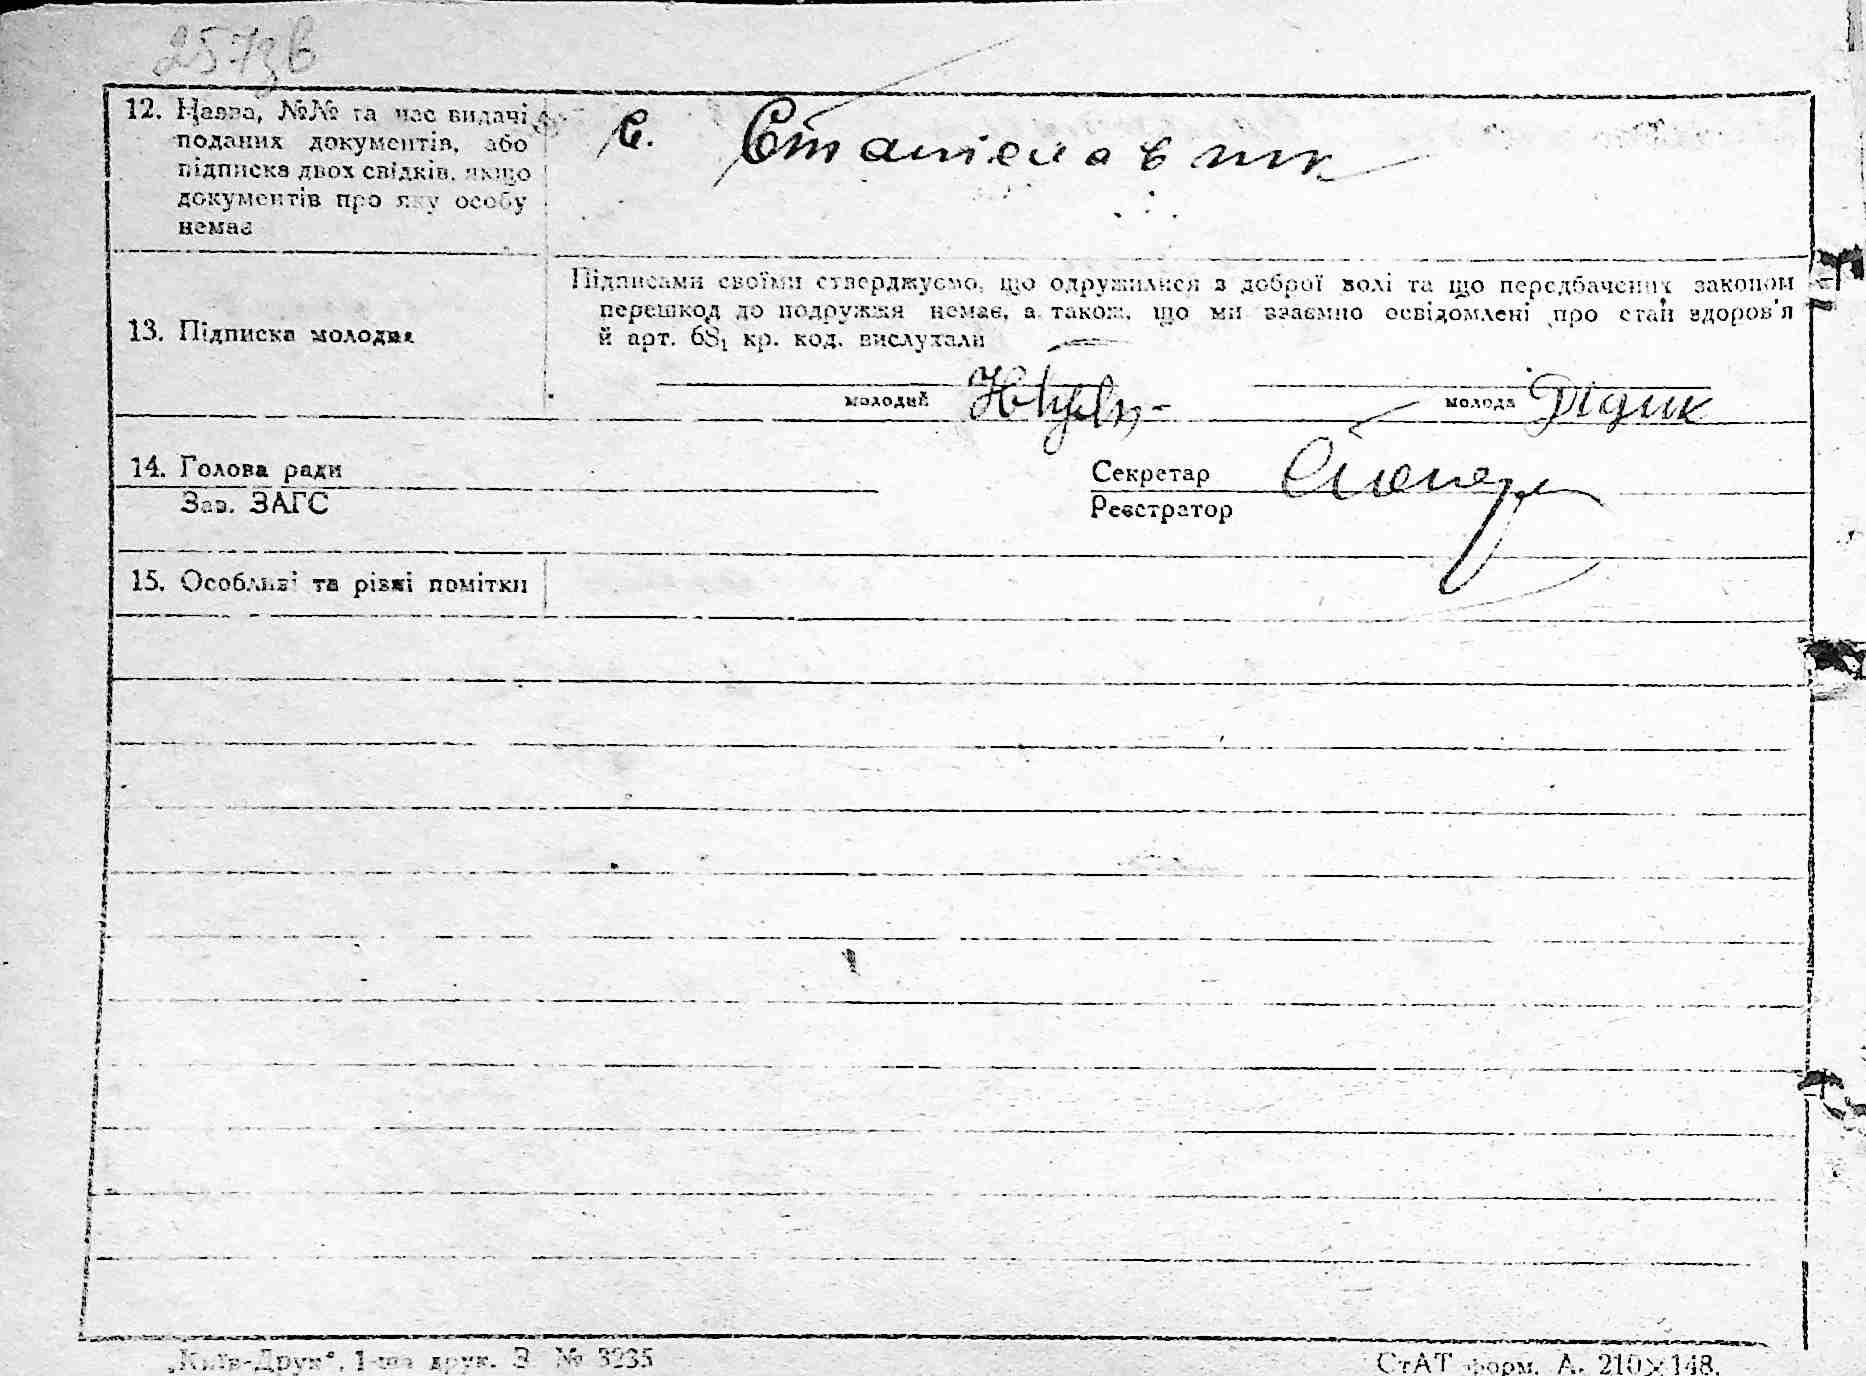 257зв
12. Назва, №№ та час видачі
поданих документів, або
підписка двох свідків, якщо
документів про яку особу
немає
с. Станіславчик
13. Підписка молодих
Підписами своїми стверджуємо, що одружилися з доброї волі та що передбачених законом
перешкод до подружжя немає, а також, що ми взаємно освідомлені про стан здоров'я
й арт. 68₁ кр. код. вислухали
молодий
молода Дідик
14. Голова ради
Зав. ЗАГС
Секретар
Реєстратор
15. Особливі та різні помітки
„Київ-Друк“, 1-ша друк. З. № 3235
СтАТ форм. А. 210×148.